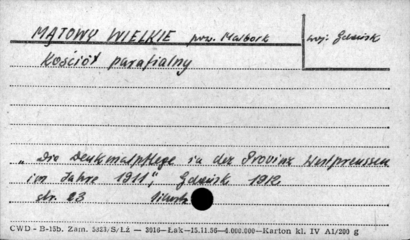 MĄTOWY WIELKIE pow. Malbork woj. Gdańsk
Kościół parafialny
„Die Denkmalpflege in der Provinz Westpreussen
im Jahre 1911", Gdańsk 1912
str. 23
CWD - B-15b. Zam. 5823/S/ŁŻ — 3016—Łsk—15.11.56—4.000.000—Karton kl. IV A1/200 g